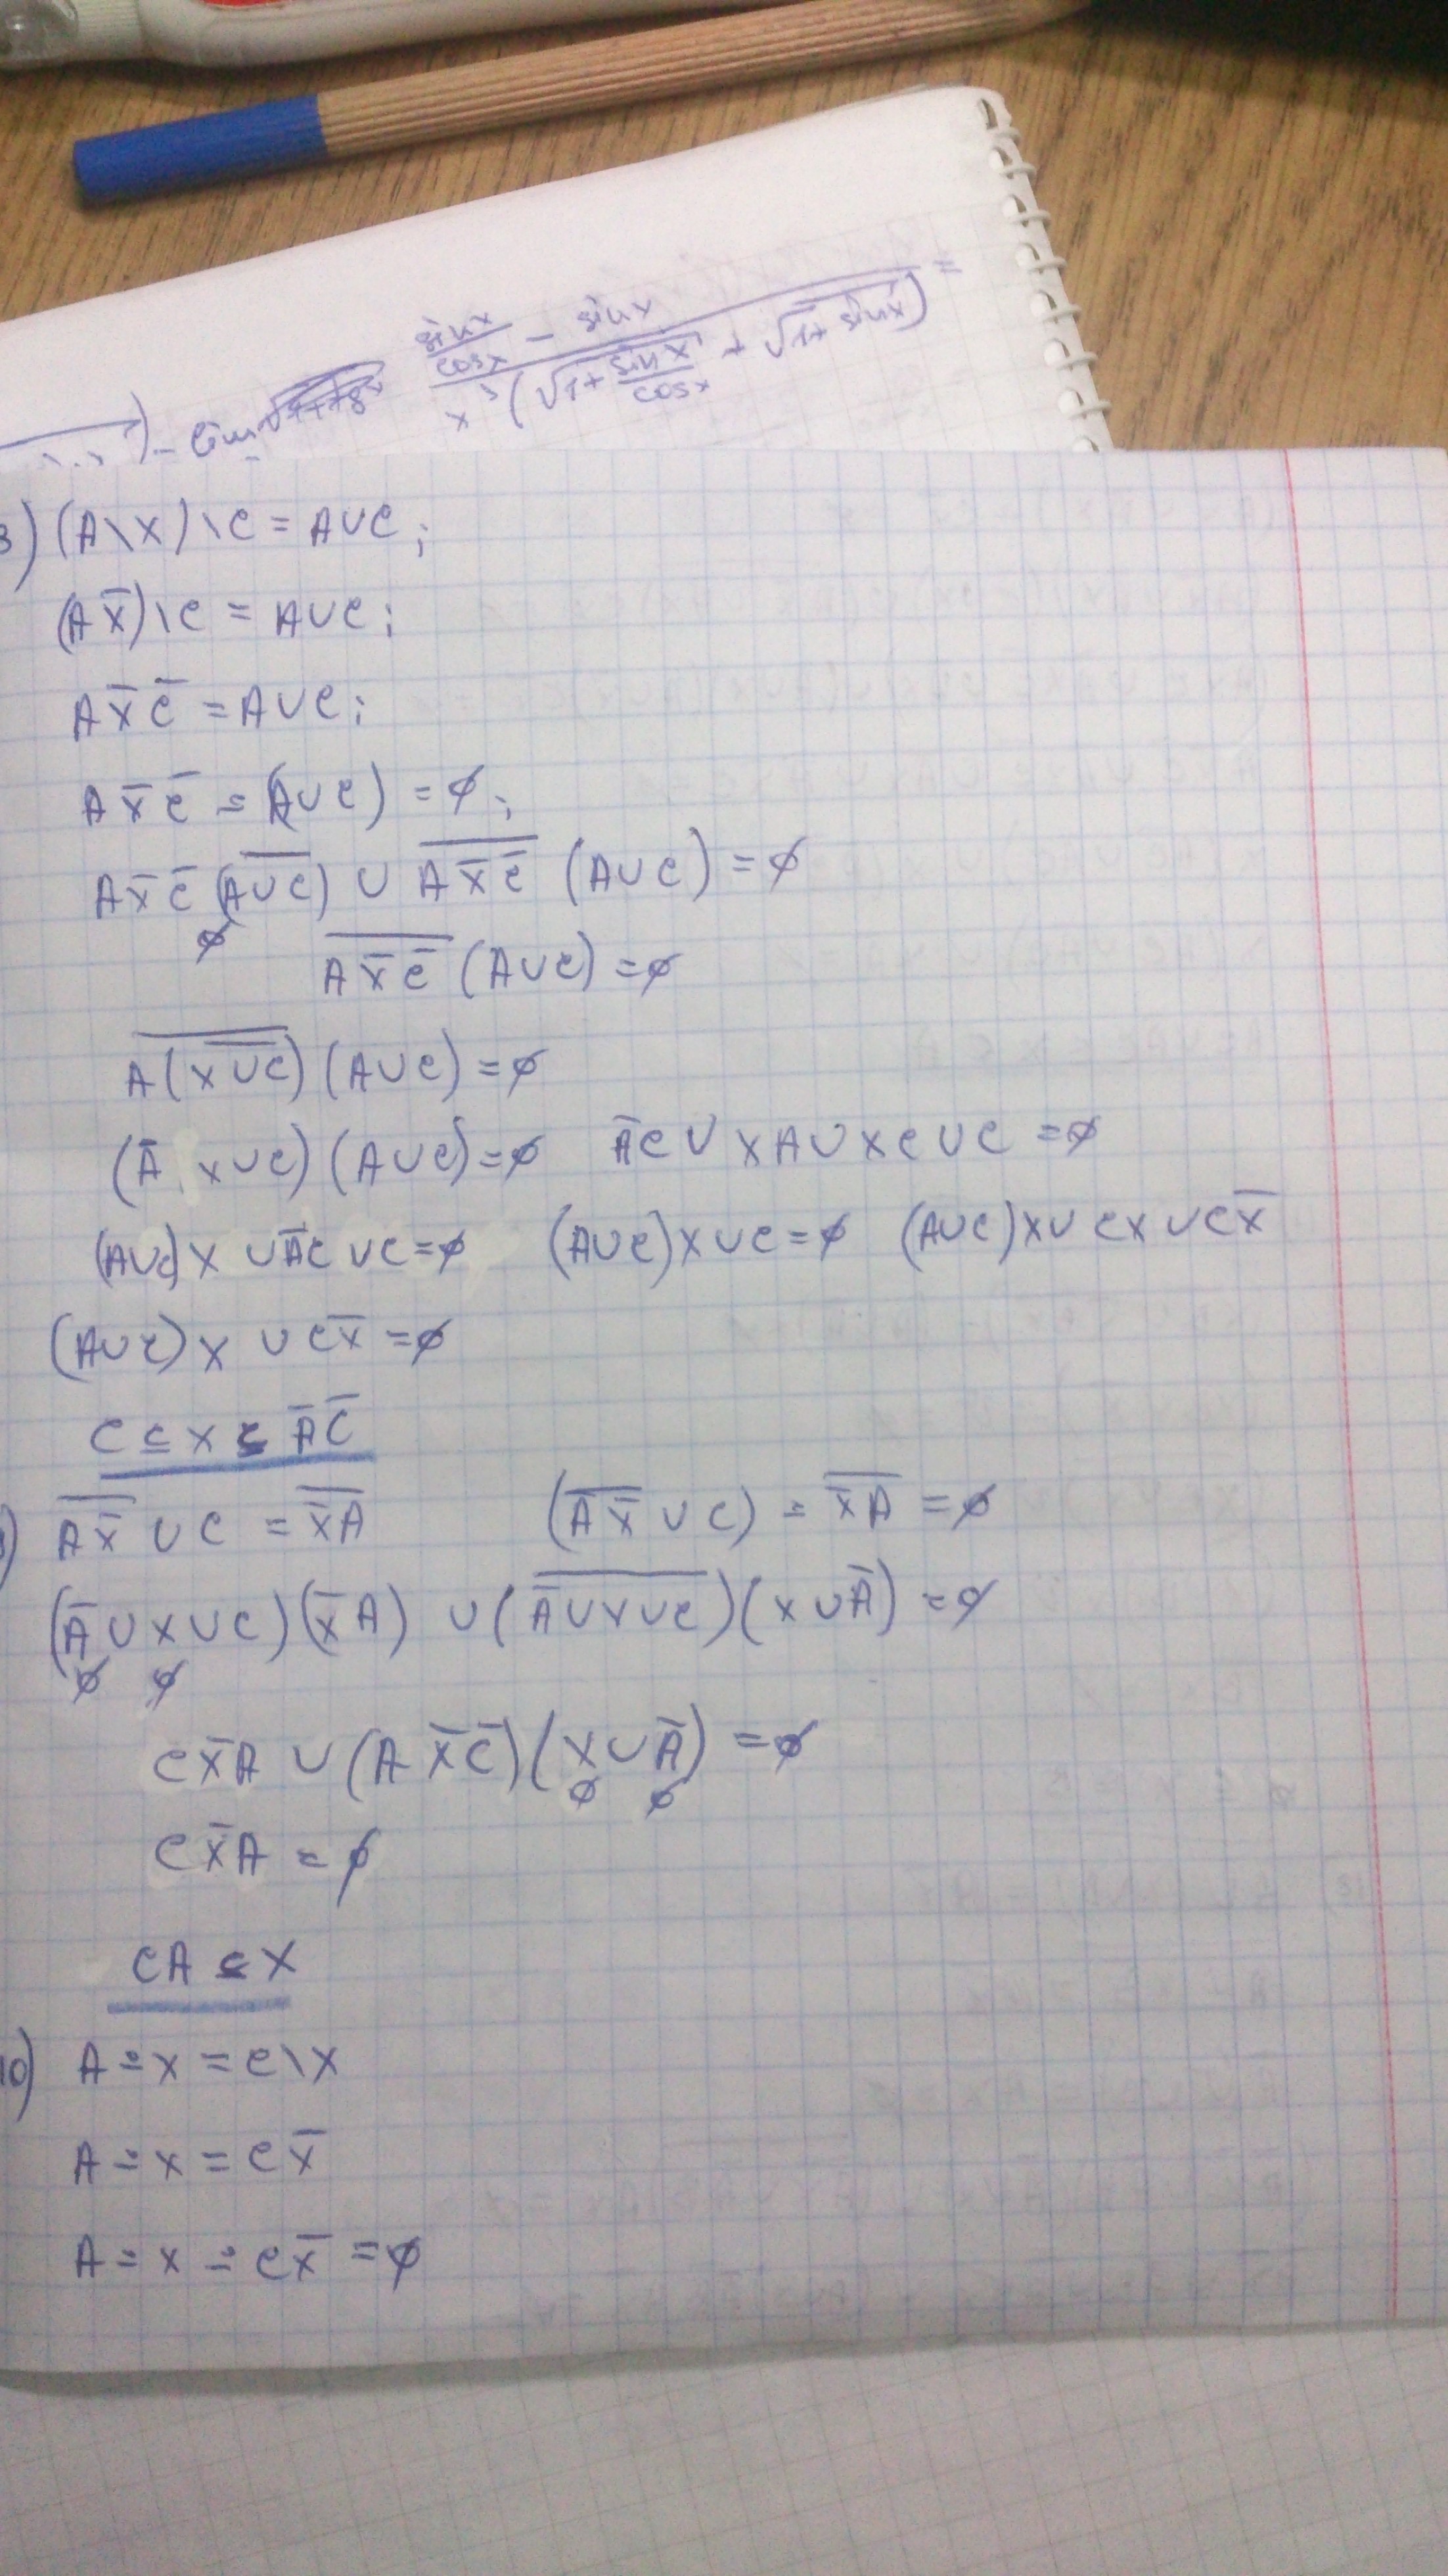 sinx/cosx - sinx
lim x³(√1+ sinx/cosx + √1+ sinx) =
8) (A\X)\C = A∪C;
(AX̅)\C = A∪C;
AX̅C̅ = A∪C;
AX̅C̅ ∸ (A∪C) = ∅;
AX̅C̅ (A̅∪̅C̅) ∪ A̅X̅̅C̅̅ (A∪C) = ∅
∅
A̅X̅̅C̅̅ (A∪C) = ∅
A̅(̅X̅∪̅C̅)̅ (A∪C) = ∅
(A̅ X∪C)(A∪C) = ∅ A̅C∪XA∪XC∪C = ∅
(A∪C)X ∪A̅C∪C=∅ (A∪C)X∪C=∅ (A∪C)X∪CX∪CX̅
(A∪C)X ∪CX̅ =∅
C⊆X⊆A̅C̅
A̅X̅̅ ∪ C = X̅̅A̅ (A̅X̅̅ ∪ C) ∸ X̅̅A̅ = ∅
(A̅∪X∪C)(X̅A) ∪ (A̅̅∪̅X̅∪̅C̅)(X∪A̅) = ∅
∅ ∅
CX̅A ∪ (AX̅C̅)(X∪A̅) = ∅
∅ ∅
CX̅A = ∅
CA ⊆ X
10) A ∸ X = C\X
A ∸ X = CX̅
A ∸ X ∸ CX̅ = ∅